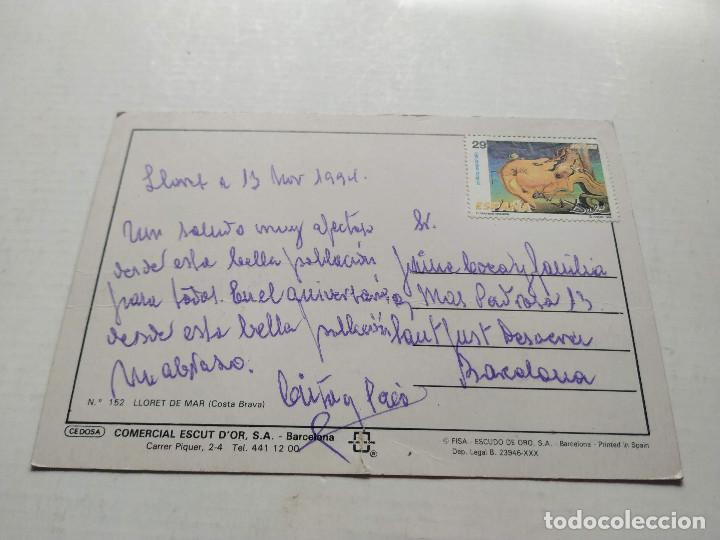 Lloret a 13 Nov 1994.
Un saludo muy afectuoso
desde esta bella población
para todos. En el aniversario
desde esta bella población
un abrazo.
Sr.
Jaime y familia
Mas 13
Sant Just Desvern
Barcelona
29
ESPAÑA
N.° 152 LLORET DE MAR (Costa Brava)
CEDOSA COMERCIAL ESCUT D'OR, S.A. - Barcelona
Carrer Piquer, 2-4 Tel. 441 12 00
®
© FISA - ESCUDO DE ORO, S.A. - Barcelona - Printed in Spain
Dep. Legal B. 23946-XXX
todocoleccion.net